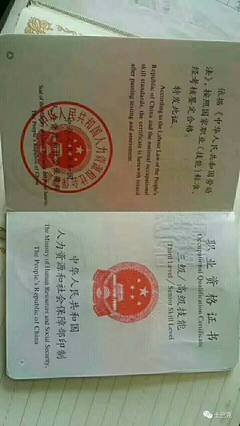 依据《中华人民共和国劳动
法》，按照国家职业（技能）标准，
经考核鉴定合格。
特发此证。
According to the Labour Law of the People's
Republic of China and the national occupational
skill standards, the certificate is herewith issued
after passing training and assessment.
职业资格证书
Occupational Qualification Certificate
三级/高级技能
Third Level / Senior Skill Level
中华人民共和国
人力资源和社会保障部印制
The Ministry of Human Resources and Social Security,
The People's Republic of China